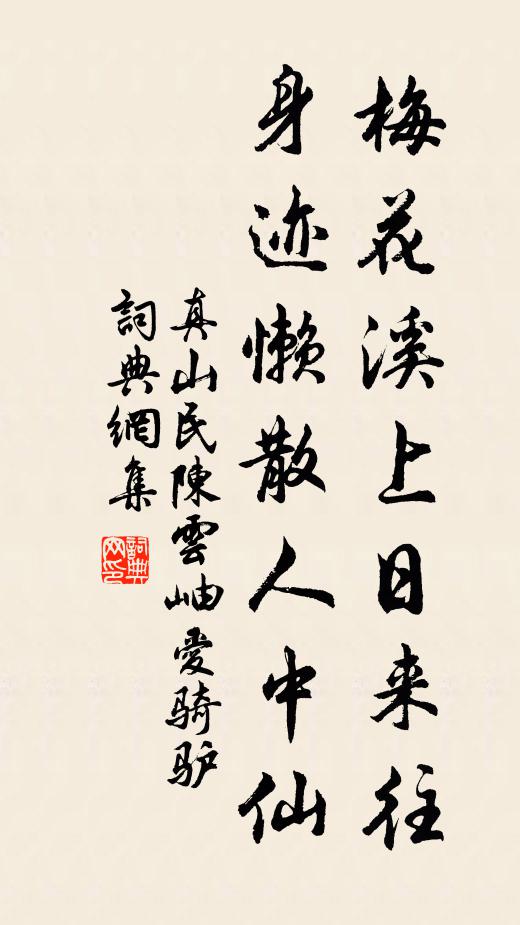 梅花溪上日来往
身迹懒散人中仙
真山民陳雲岫愛骑驴
詞典網集
詞典网印